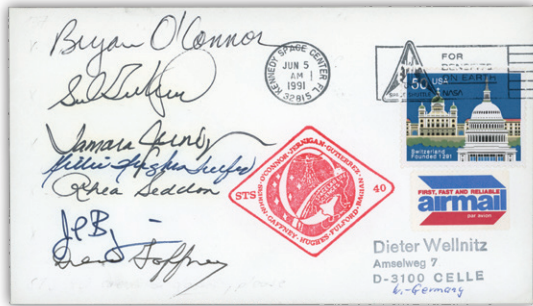 Bryan O'Connor
Tamara Jernigan
Millie Hughes-Fulford
Rhea Seddon
Drew Gaffney
KENNEDY SPACE CENTER, FL
JUN 5
AM
1991
32815
FOR
BENEFITS
ON EARTH
NASA
50 USA
Switzerland
Founded 1291
O'CONNOR JERNIGAN GUTIERREZ
STS 40
SEDDON GAFFNEY HUGHES-FULFORD BAGIAN
FIRST, FAST AND RELIABLE
airmail
PAR AVION
Dieter Wellnitz
Amselweg 7
D-3100 CELLE
W.-Germany